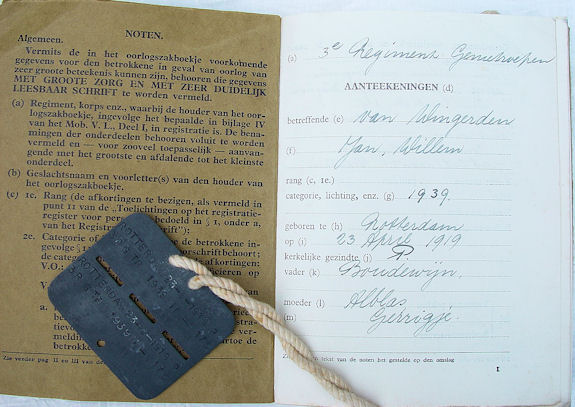 NOTEN.
Algemeen.
Vermits de in het oorlogszakboekje voorkomende
gegevens voor den betrokkene in geval van oorlog van
zeer groote beteekenis kunnen zijn, behooren die gegevens
MET GROOTE ZORG EN MET ZEER DUIDELIJK
LEESBAAR SCHRIFT te worden vermeld.
(a) Regiment, korps enz., waarbij de houder van het oor-
logszakboekje, ingevolge het bepaalde in bijlage IV
van het Mob. V. L., Deel I, in registratie is. De bena-
mingen der onderdeelen behooren voluit te worden
vermeld en — voor zooveel toepasselijk — aanvan-
gende met het grootste en afdalende tot het kleinste
onderdeel.
(b) Geslachtsnaam en voorletter(s) van den houder van
het oorlogszakboekje.
(c) 1e. Rang (de afkortingen te bezigen, als vermeld in
punt 11 van de „Toelichtingen op het registratie-
register voor pers bedoeld in § 1, onder a,
van het Registra rift");
2e. Categorie of de betrokkene in-
gevolge § 1 voorschrift behoort;
de catego afkortingen:
V.O.; officieren op
a.
Zie verder pag II en III van de
ROTTERDAM
(a) 3e Regiment Genietroepen
AANTEEKENINGEN (d)
betreffende (e) van Wingerden
(f) Jan, Willem
rang (c, 1e.)
categorie, lichting, enz. (g) 1939.
geboren te (h) Rotterdam
op (i) 23 April 1919
kerkelijke gezindte (j) P
vader (k) Boudewijn.
moeder (l) Alblas
(m) Gerrigje.
Zie tekst van de noten het gestelde op den omslag
1